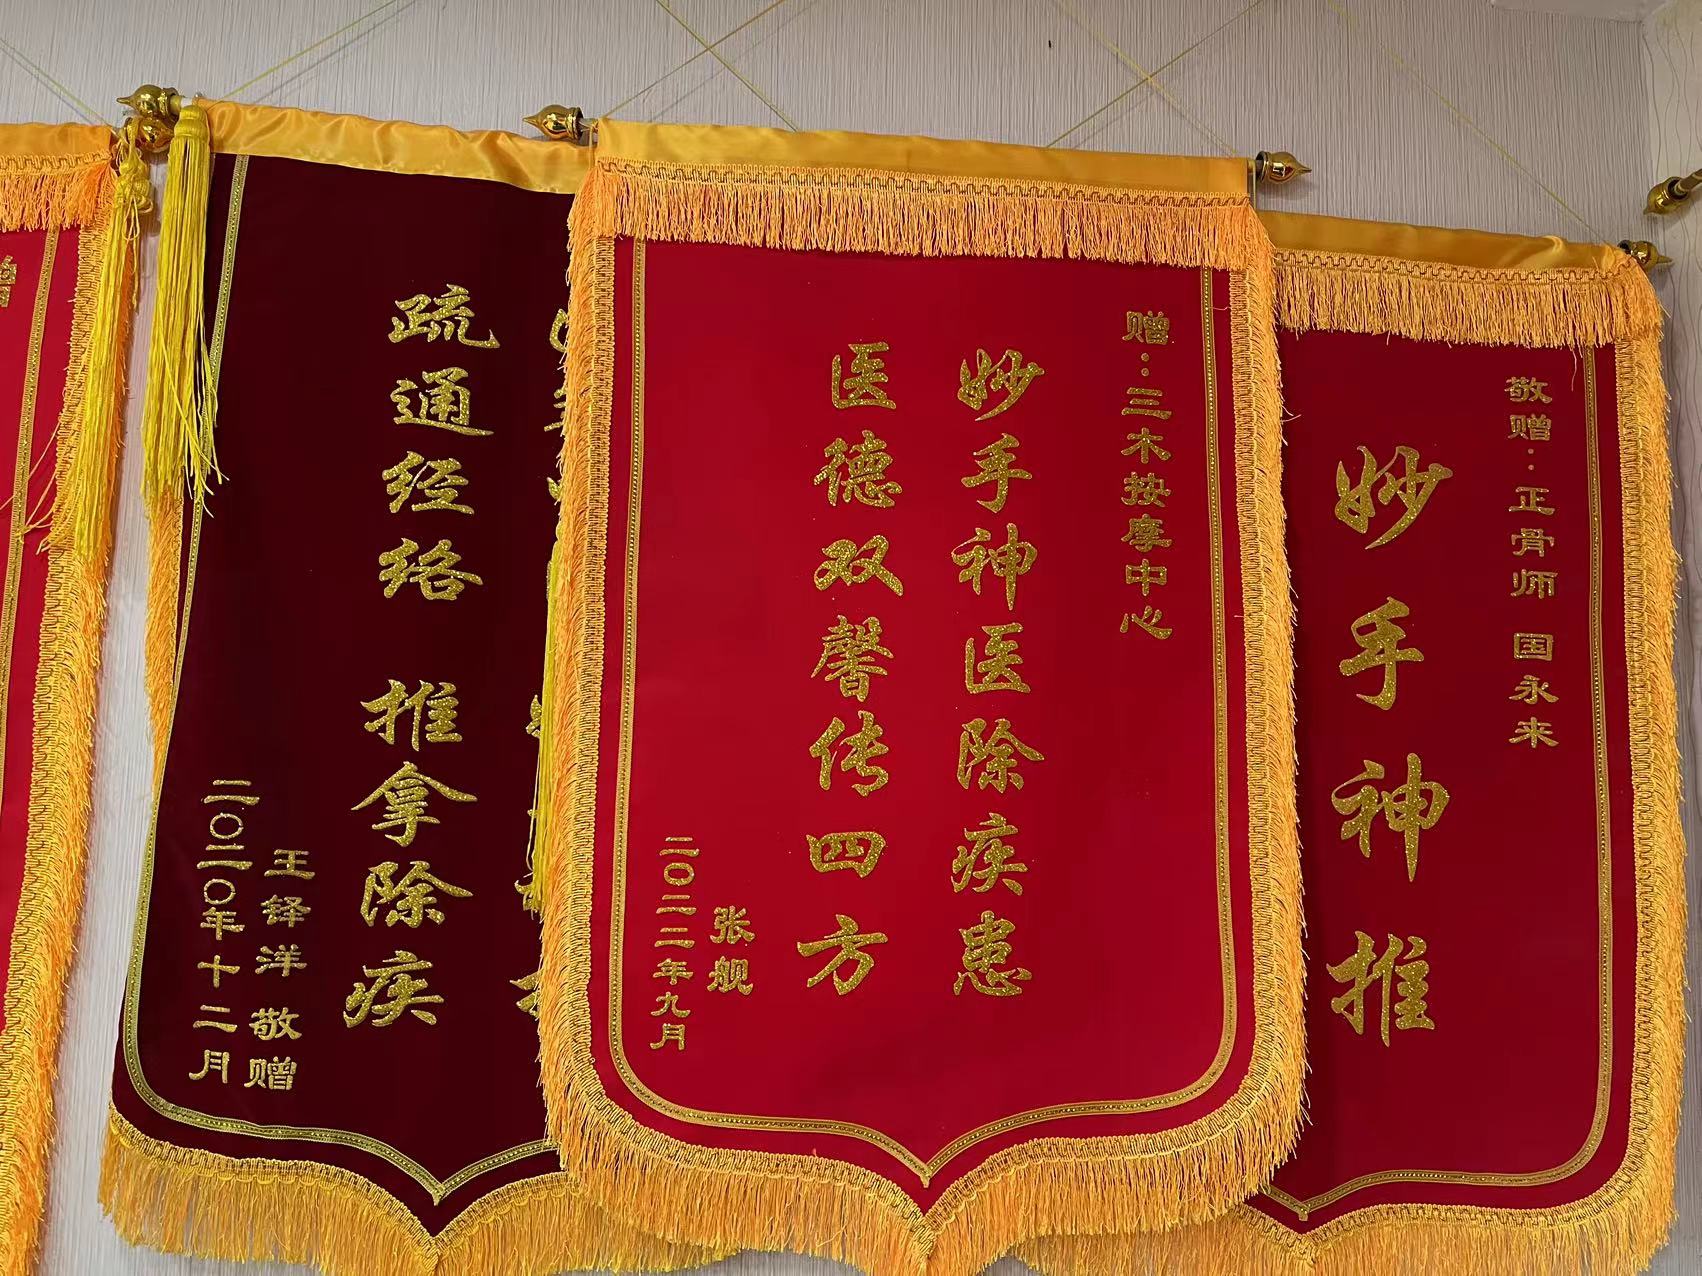 赠:三木按摩中心
妙手神医除疾患
医德双馨传四方
张舰
二〇二二年九月
敬赠:正骨师 国永来
妙手神推
疏通经络 推拿除疾
王铎洋 敬赠
二〇二〇年十二月